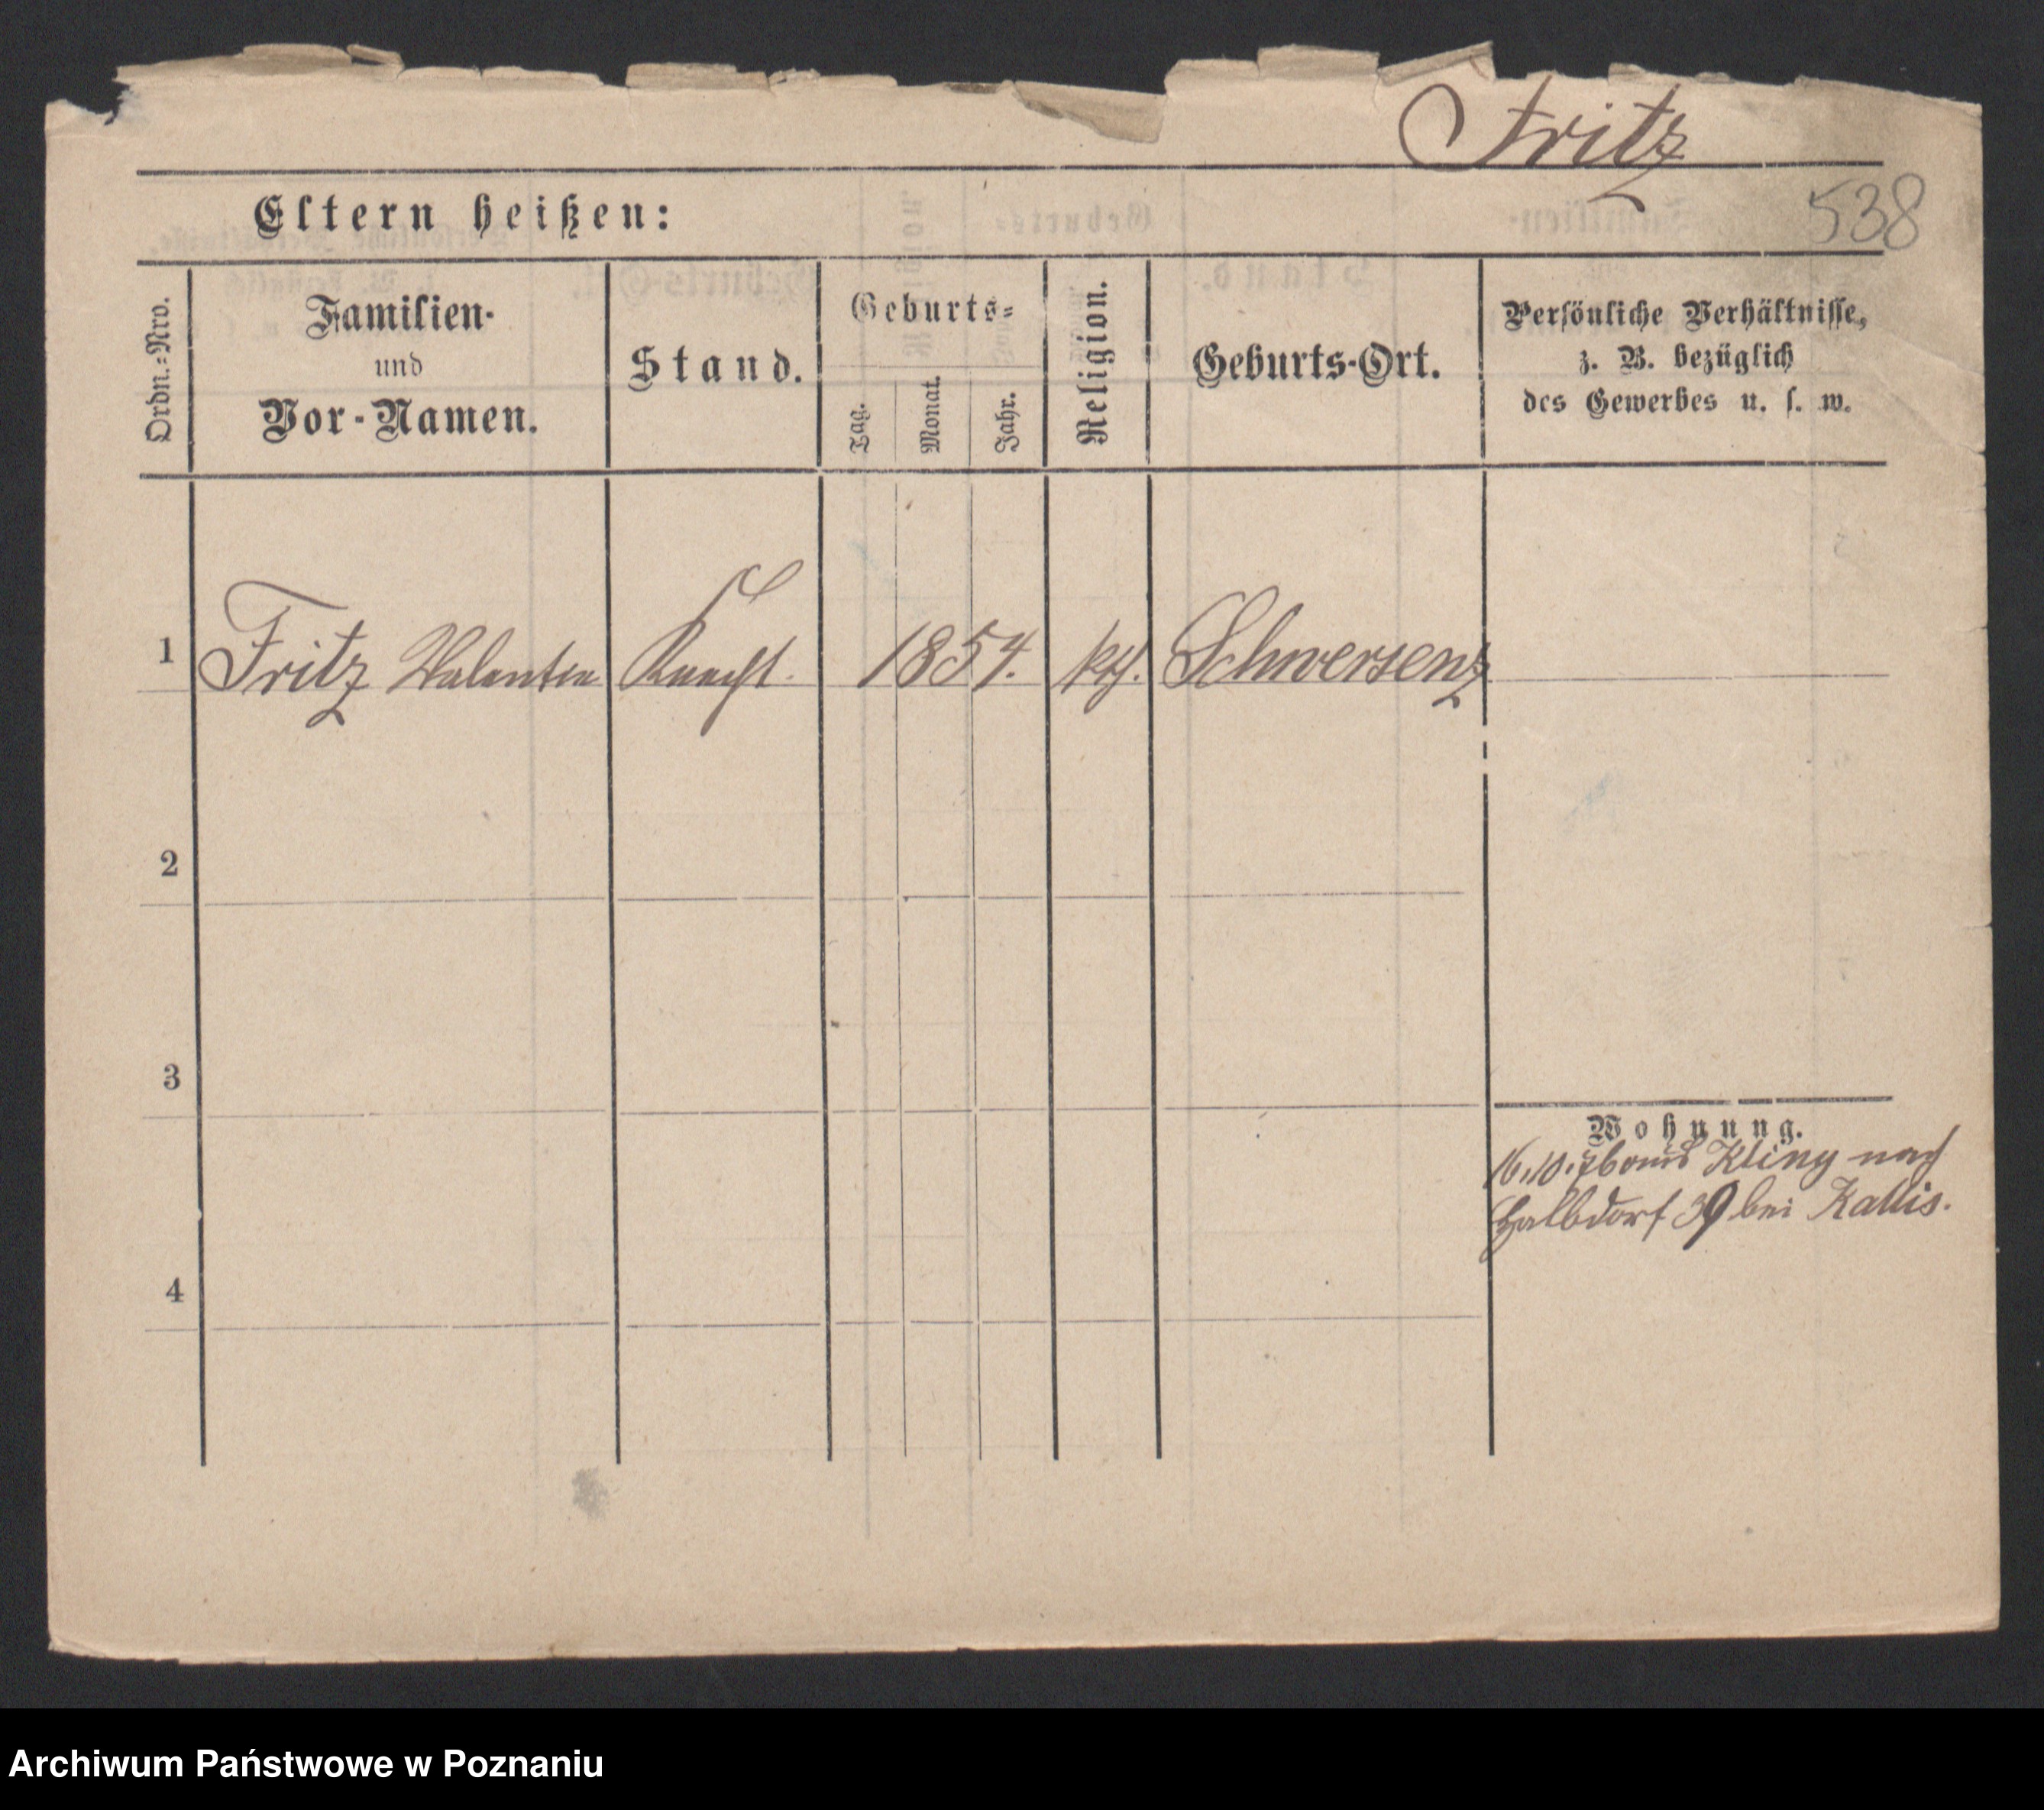 Fritz
538
Eltern heißen:
Ordn.-Nro.
Familien-
und
Vor-Namen.
Stand.
Geburts-
Tag.
Monat.
Jahr.
Religion.
Geburts-Ort.
Persönliche Verhältnisse,
z. B. bezüglich
des Gewerbes u. s. w.
1 Fritz Valentin Knecht. 1854. kth. Schwersenz
2
3
Wohnung.
16.10.76 aus Kling nach
Halbdorf 39 bei Kallis.
4
Archiwum Państwowe w Poznaniu